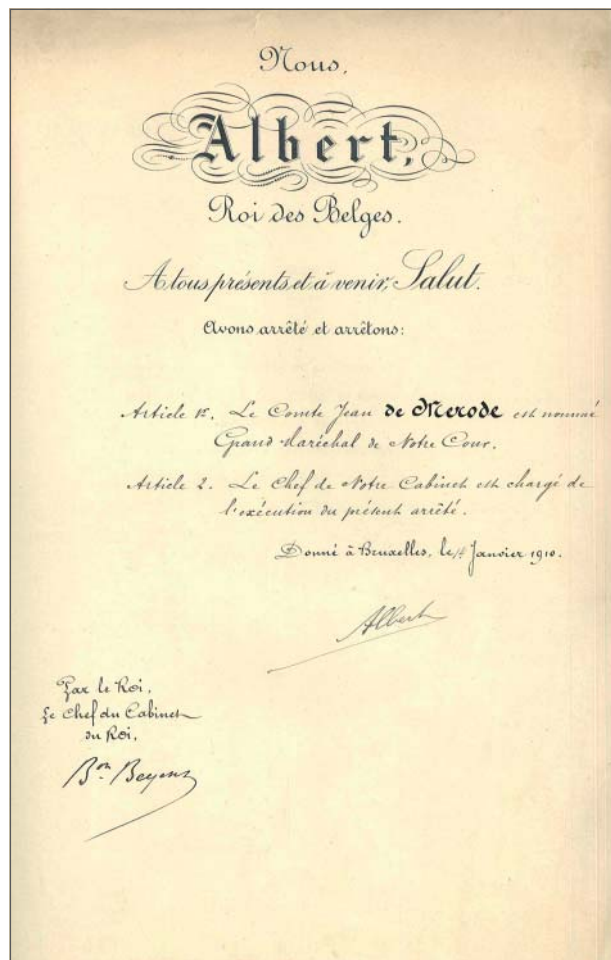 Nous,
Albert,
Roi des Belges.
A tous présents et à venir, Salut.
Avons arrêté et arrêtons:
Article 1er. Le Comte Jean de Merode est nommé
Grand Maréchal de Notre Cour.
Article 2. Le Chef de Notre Cabinet est chargé de
l'exécution du présent arrêté.
Donné à Bruxelles, le Janvier 1910.
Albert
Par le Roi,
Le Chef du Cabinet
du Roi,
Bon Beyens